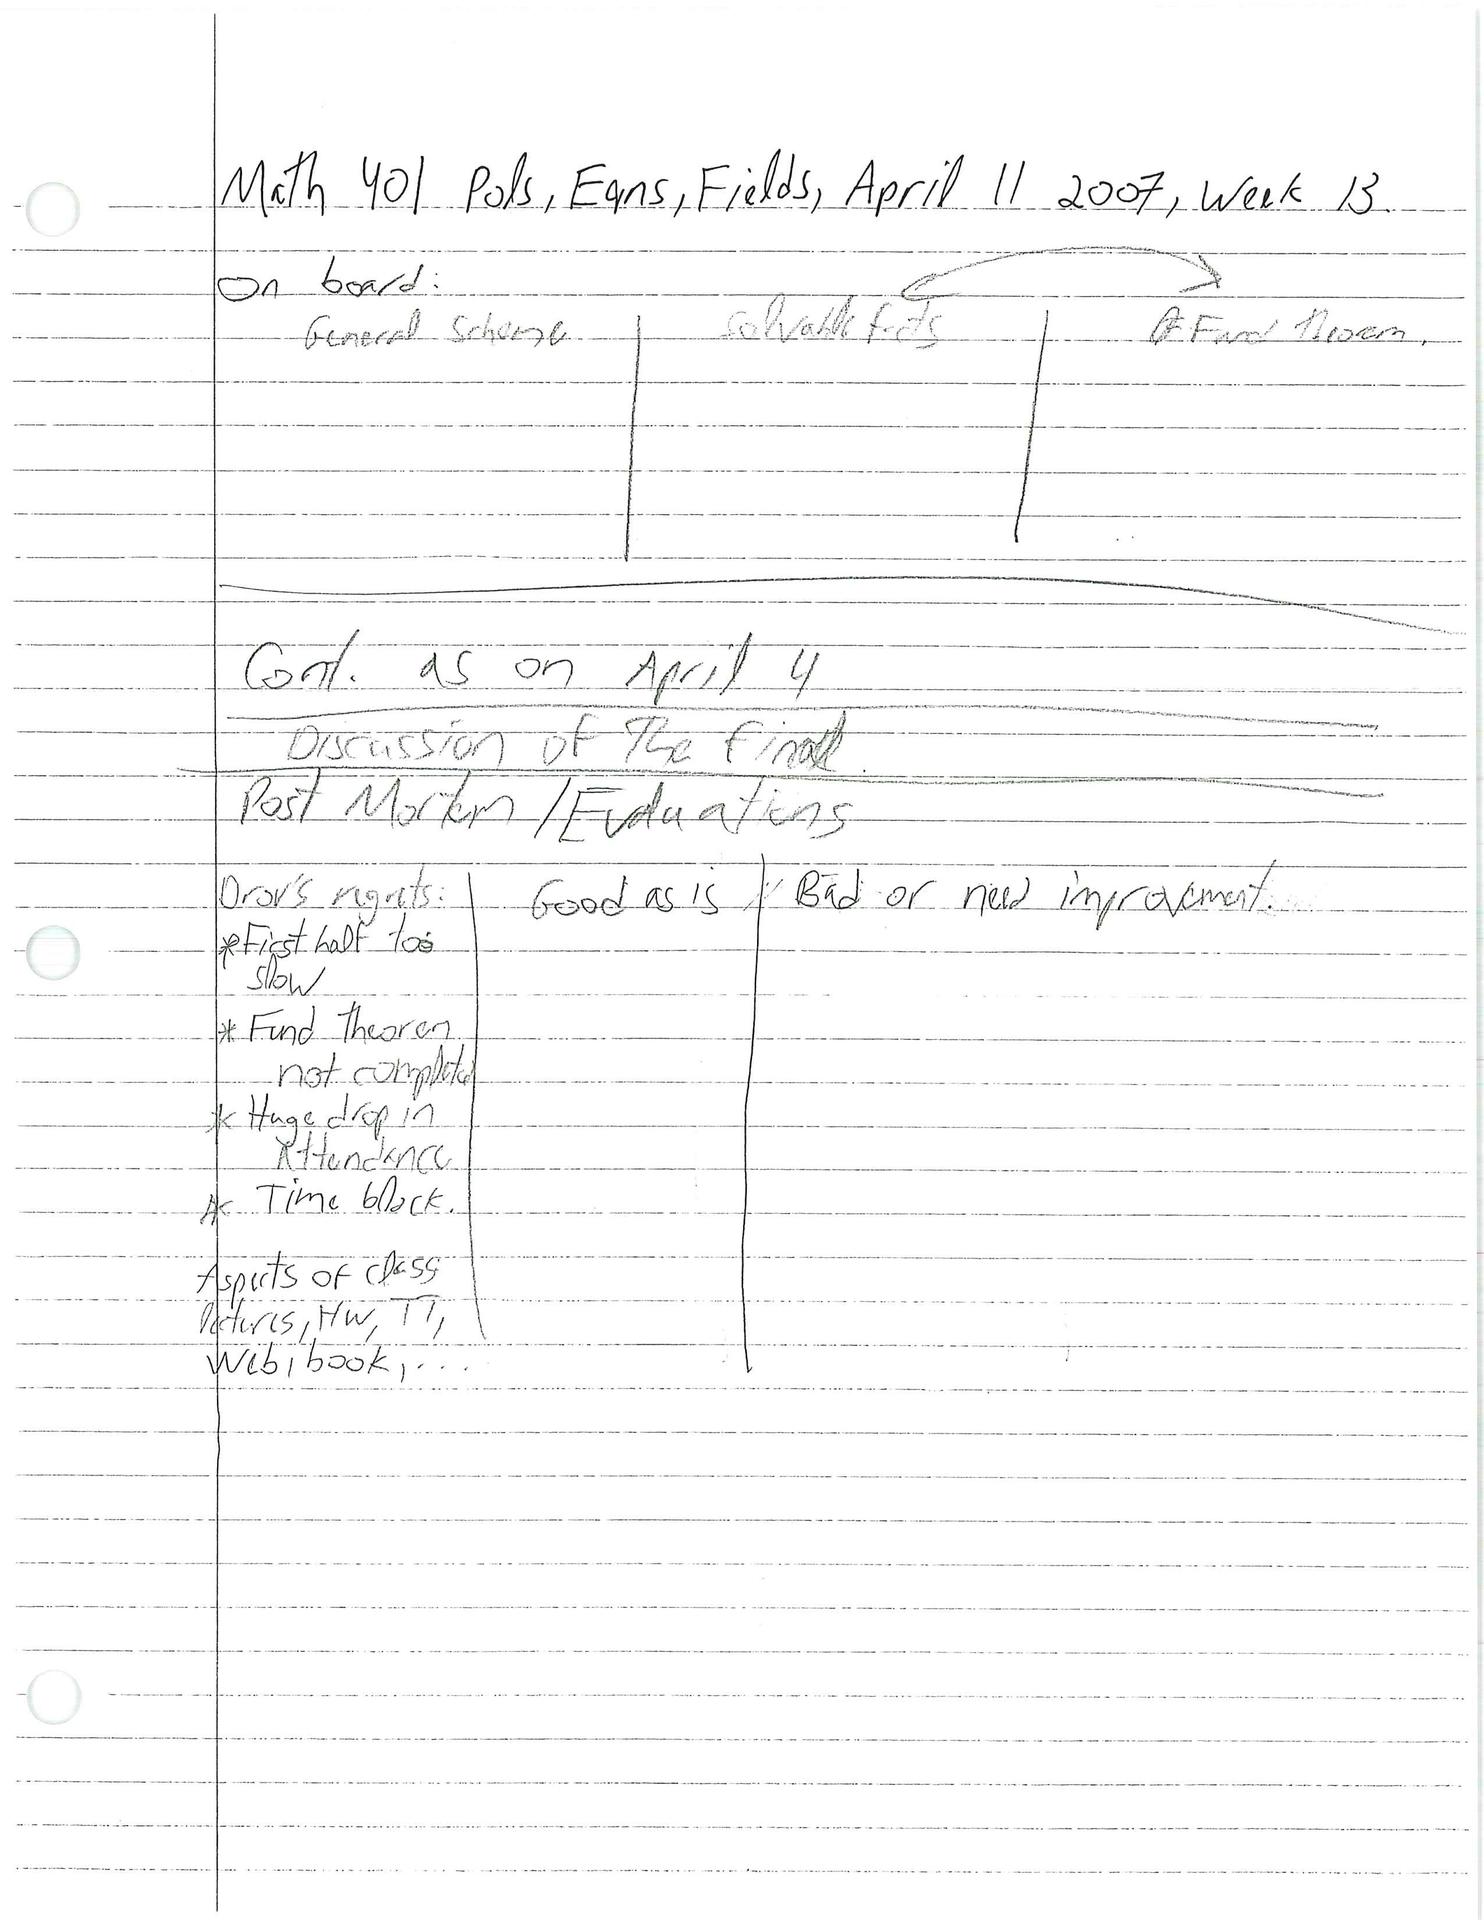 Math 401 Pols, Eqns, Fields, April 11 2007, Week 13.
On board:
General Scheme
Solvable facts
Fund Theorem.
Cont. as on April 4
Discussion of The Final.
Post Mortem / Evaluations
Dror's regrets:
* First half too
slow
* Fund Theorem
not completed
* Huge drop in
Attendance
* Time block.
Aspects of class
Lectures, HW, TT,
Web, book, ...
Good as is
Bad or need improvement.